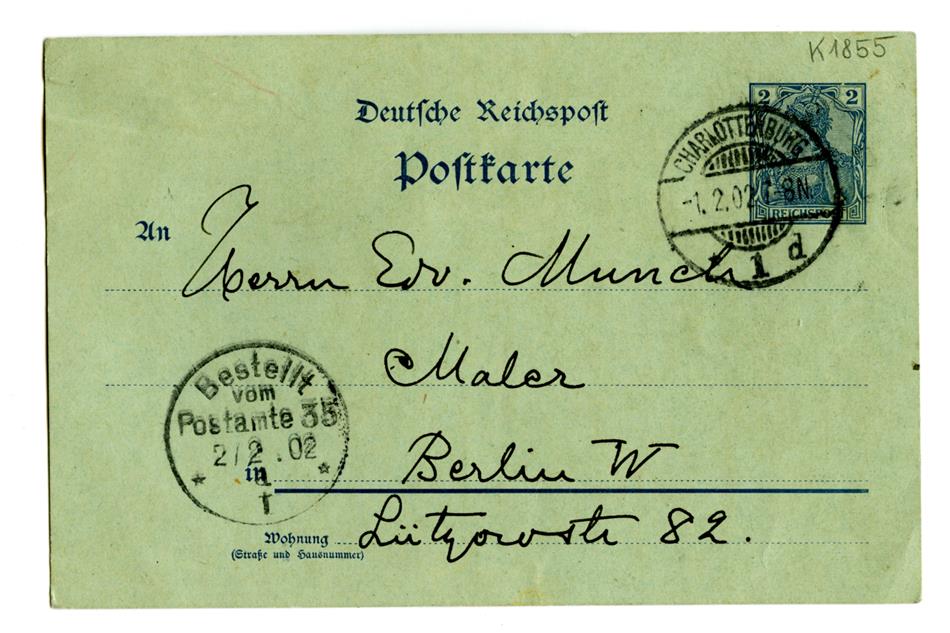 K1855
Deutsche Reichspost
Postkarte
2 2
REICHSPOST
CHARLOTTENBURG
-1.2.02 7-8N.
* 1 d
An Herrn Edv. Munch
Maler
Bestellt
vom
Postamte 35
2/2.02
in Berlin W
Wohnung Lützowstr 82.
(Straße und Hausnummer)